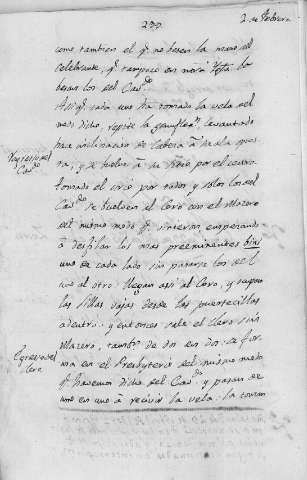 239.
2. de Febrero
como tambien el qe. no besen la mano al
Celebrante, qe. tampoco en nrâ Ygla. la
besan los del Cavdo.
Asi qe. cada uno ha tomado la vela del
modo dicho, repite la genuflexn. levantado
hace inclinacion de Cabeza
y se buelve a su sitio por el
tomado el por todos y solos los del
Cavdo. se buelven al Coro con el Macero
del mismo modo qe. vinieron empezando
a desfilar los mas preeminentes bini
uno de cada lado sin pasarse los del
uno al otro: llegan assi al Coro, y ocupan
las sillas vajas desde las puertecillas
adentro: y entonces sale el Clero sin
Macero, tambn. de dos en dos: se for
ma en el Presbyterio del mismo modo
qe. havemos dicho del Cavdo. y pasan de
uno en uno à recivir la vela: la toman
Regreso del
Cavdo.
Egreso del
Clero